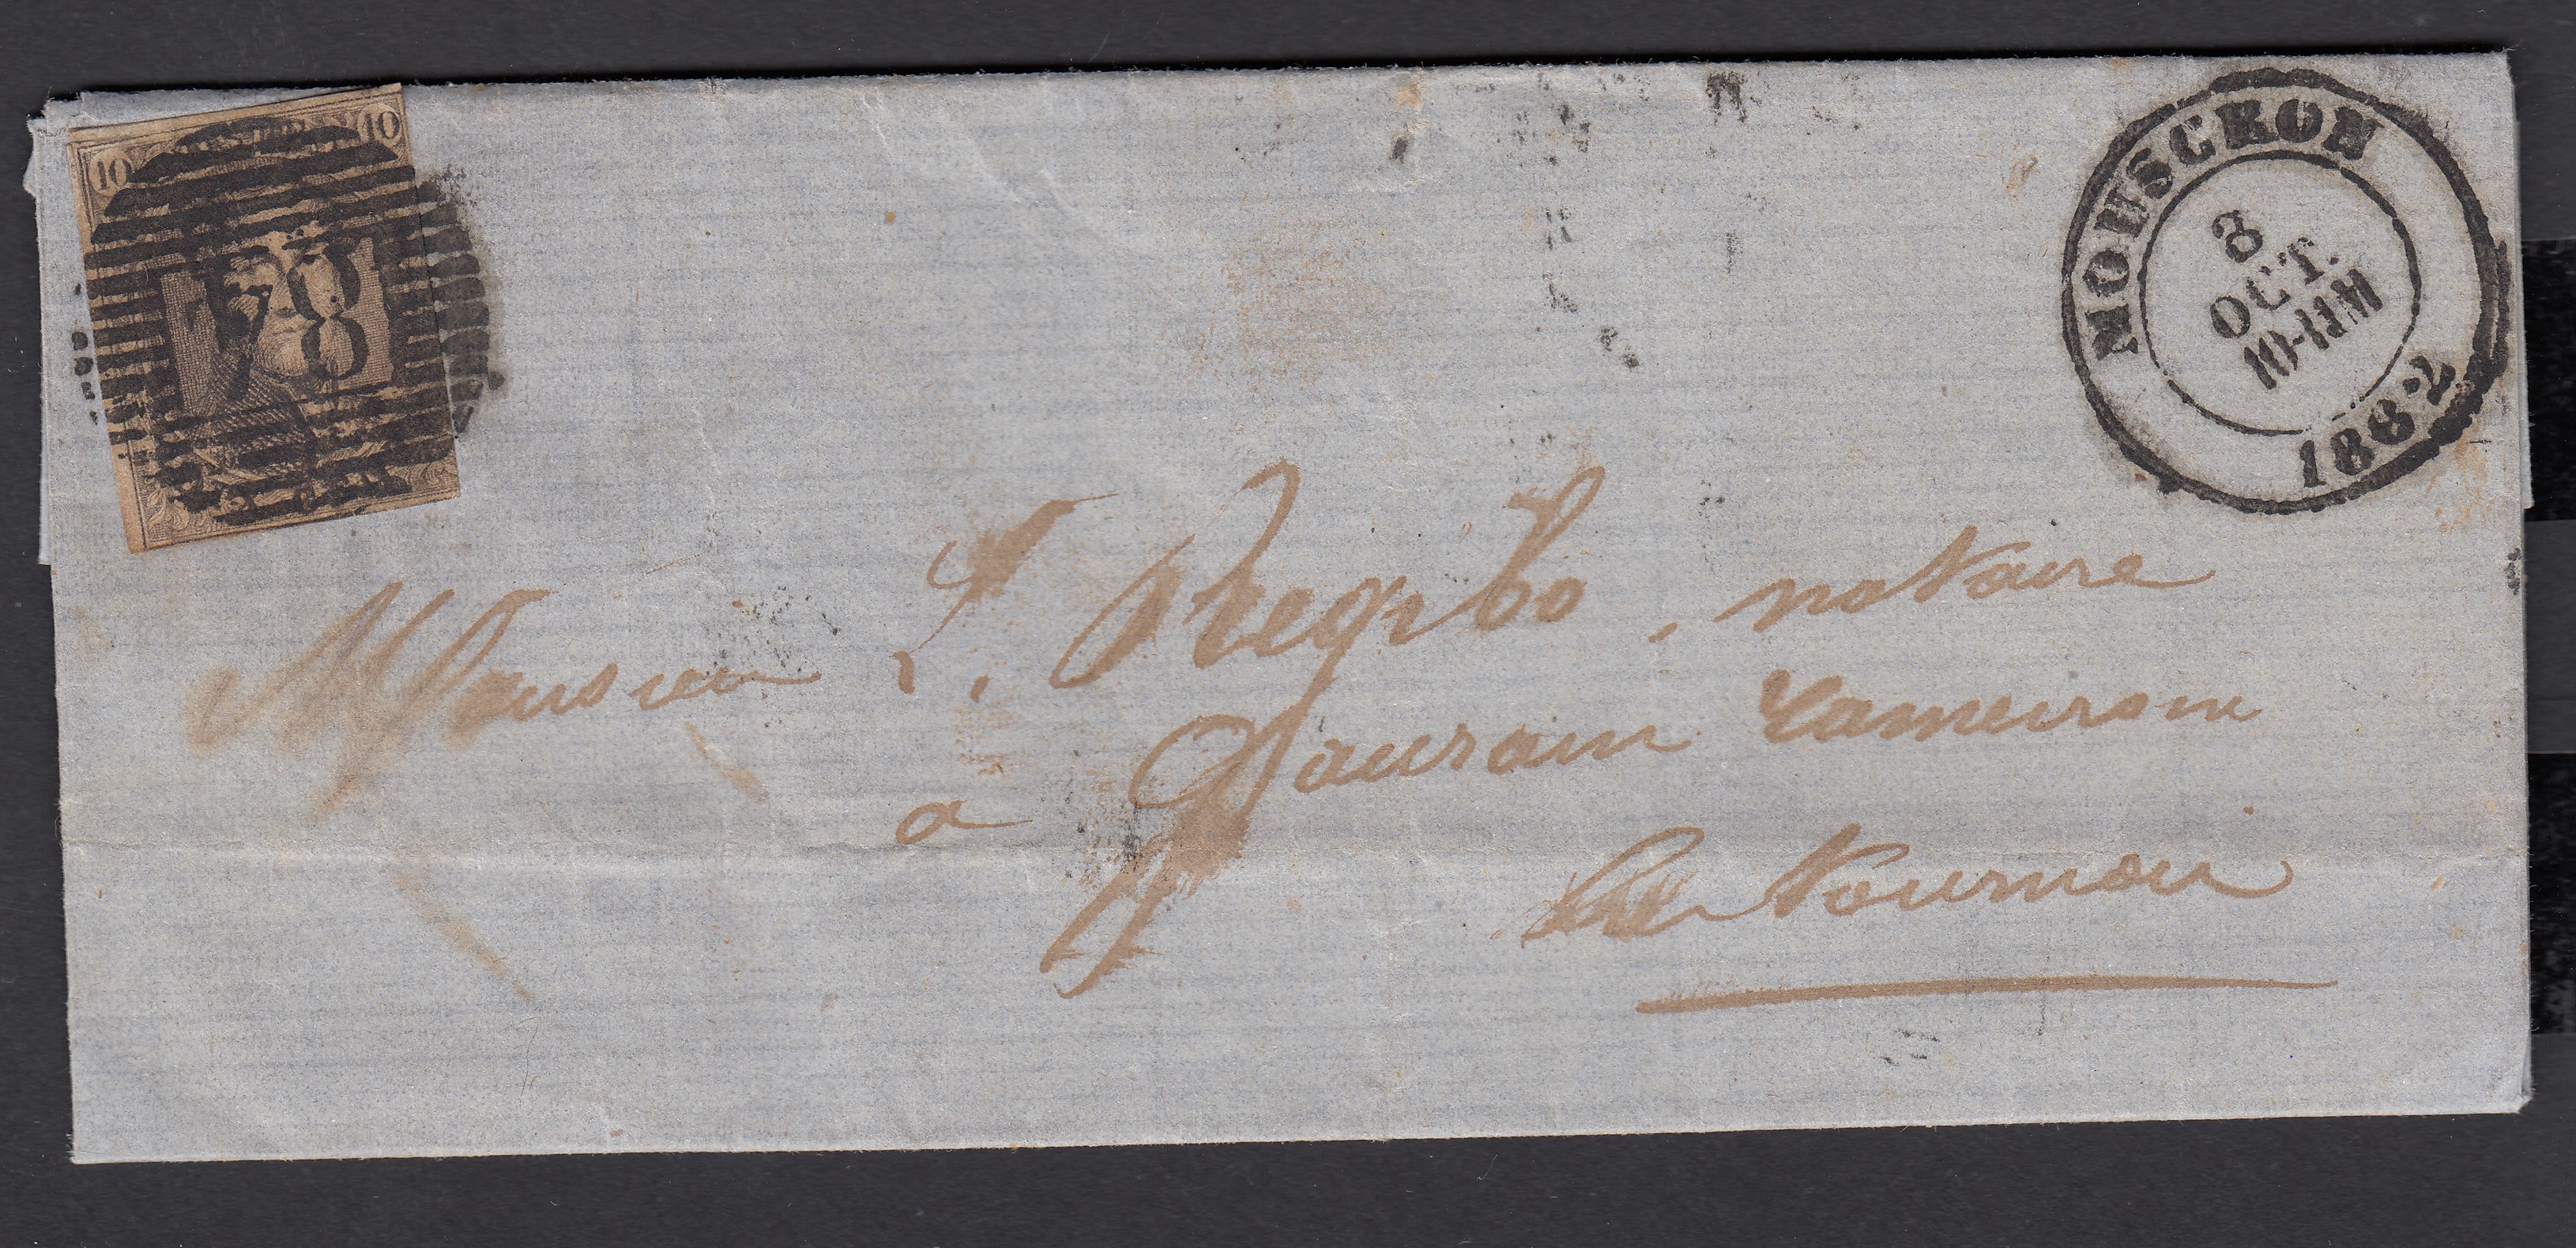 10 10
78
MOUSCRON
8
OCT.
10-11M
1882
Monsieur L. Regibo, notaire
a Gaurain Rameicroix
lez Tournai